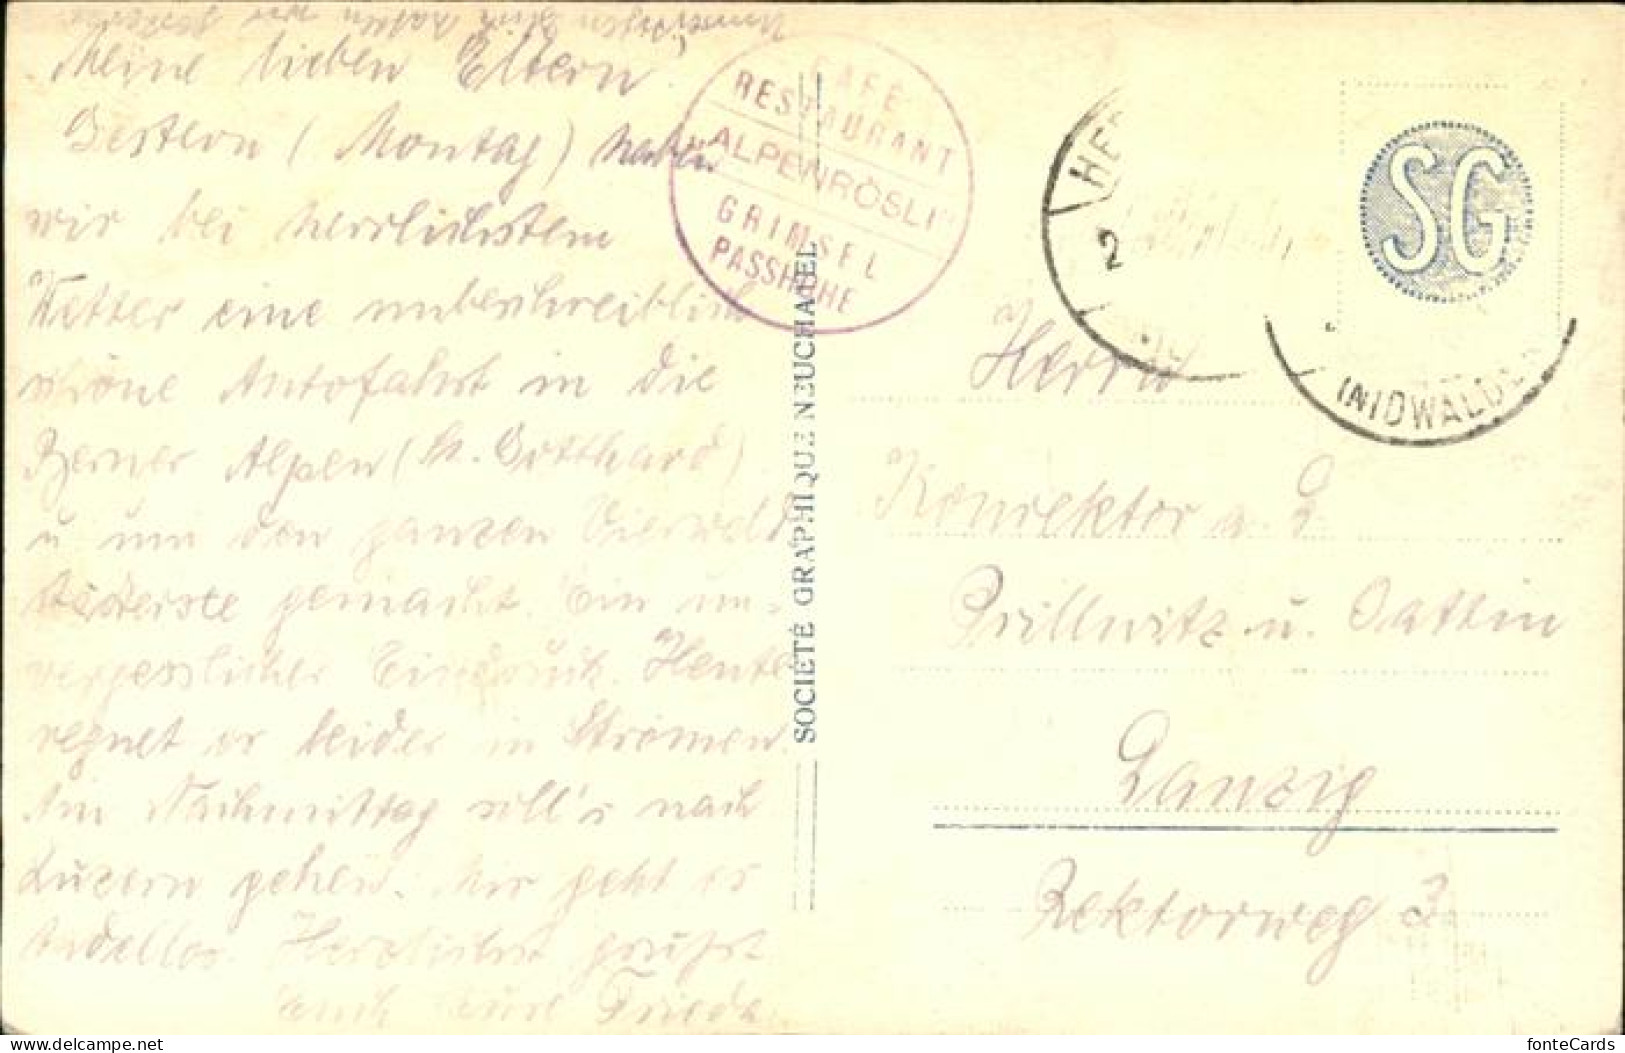 Unseligen Glück hatten wir gestern
Meine lieben Eltern!
Gestern (Montag) haben
wir bei herrlichstem
Wetter eine unbeschreiblich
schöne Autofahrt in die
Berner Alpen (St. Gotthard)
u um den ganzen Vierwald
städtersee gemacht. Ein un-
vergesslicher Eindruck. Heute
regnet es leider in Strömen.
Am Nachmittag soll's nach
Luzern gehen. Mir geht es
tadellos. Herzlichst grüsst
Euch Eure Frieda
CAFÉ
RESTAURANT
"ALPENRÖSLI"
GRIMSEL
PASSHÖHE
SOCIÉTÉ GRAPHIQUE NEUCHATEL
HE
2
SG
(NIDWALDEN
Herrn
Konrektor a. D.
Prillwitz u. Gattin
Danzig
Rektorweg 3
fonteCards